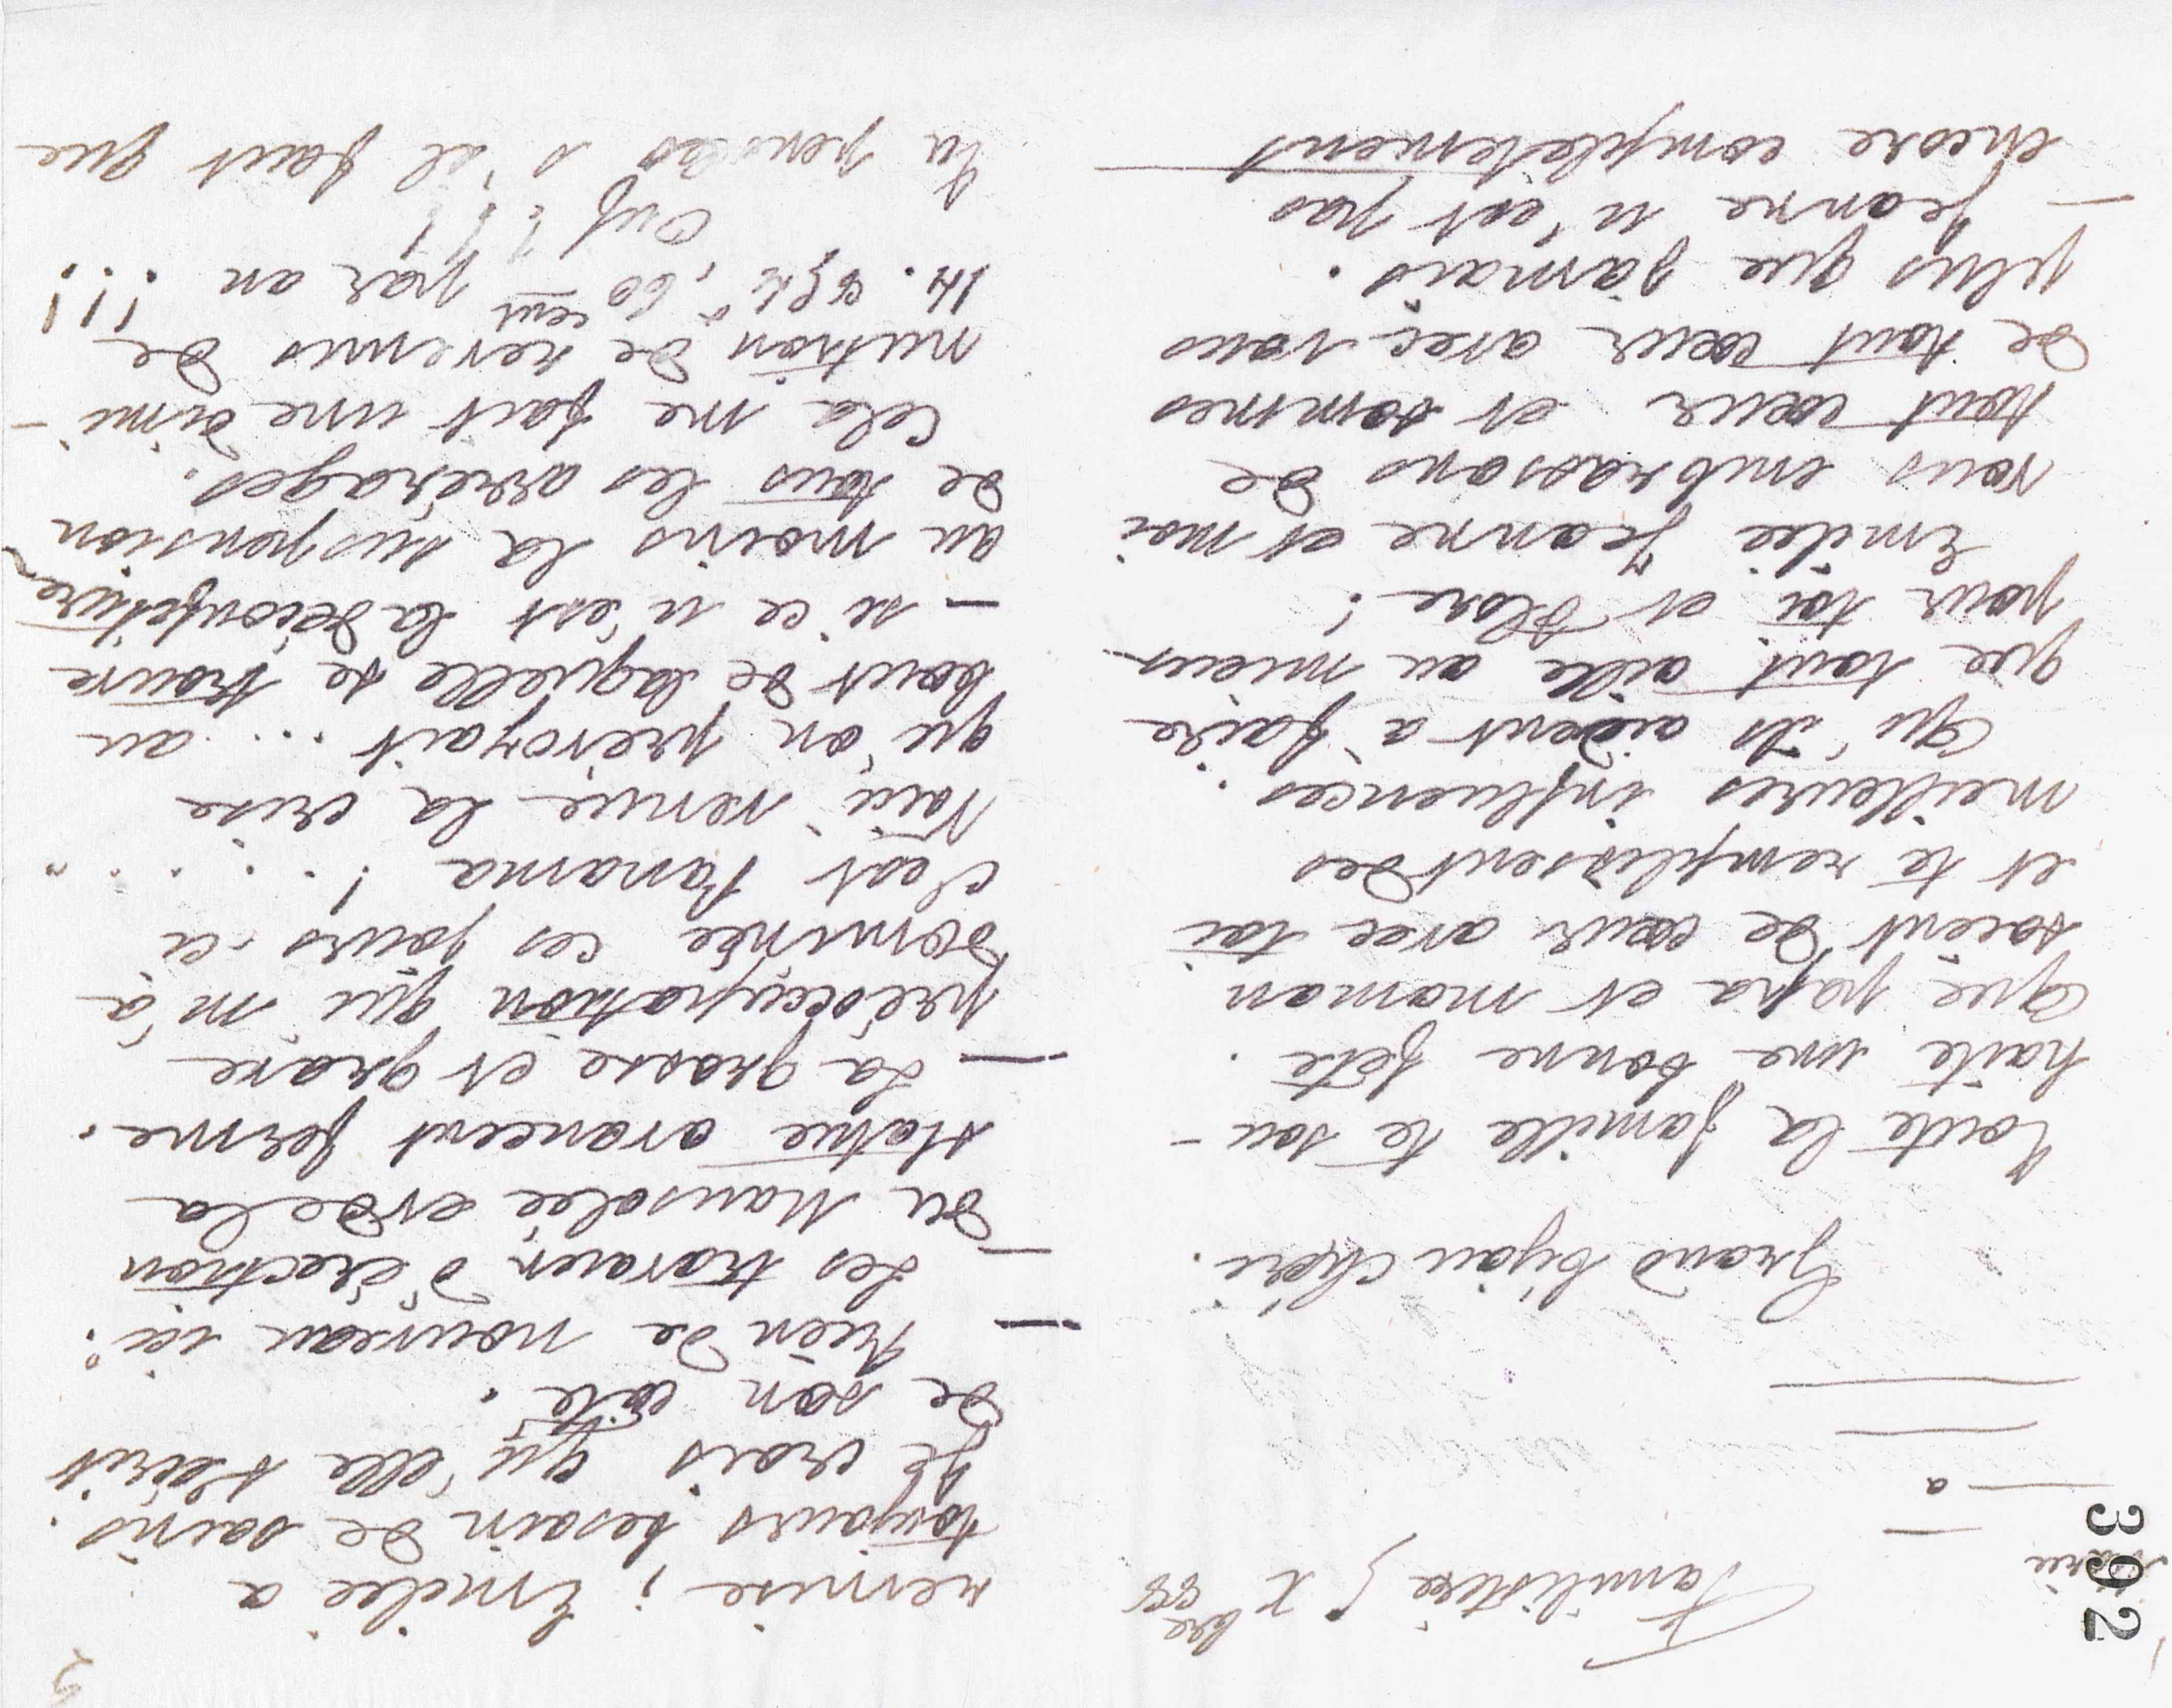 392
Marie
Familistère 5 Xbre 88
a
Grand bijou chéri.
Toute la famille te sou-
haite une bonne fête.
Que papa et maman
soient de cœur avec toi
et te remplissent des
meilleures influences.
Qu'ils aident à faire
que tout aille au mieux
pour toi et Flore !
Emilie Jeanne et moi
vous embrassons de
tout cœur et sommes
de tout cœur avec vous
plus que jamais.
– Jeanne n'est pas
encore complètement
2
remise ; Emilie a
toujours besoin de soins.
Je crois qu'elle t'écrit
de son côté.
— Rien de nouveau ici.
– Les travaux d'érection
du Mausolée et de la
statue avancent ferme.
— La grosse et grave
préoccupation qui m'a
dominée ces jours-ci
c'est Panama ! . . . . .
Voici venue la crise
qu'on prévoyait ... au
bout de laquelle se trouve
– si ce n'est la déconfiture
au moins la suspension
de tous les arrérages.
Cela me fait une dimi-
nution de revenus de
60 cent par an !!!
Ouf !!!
Tu penses s'il faut que